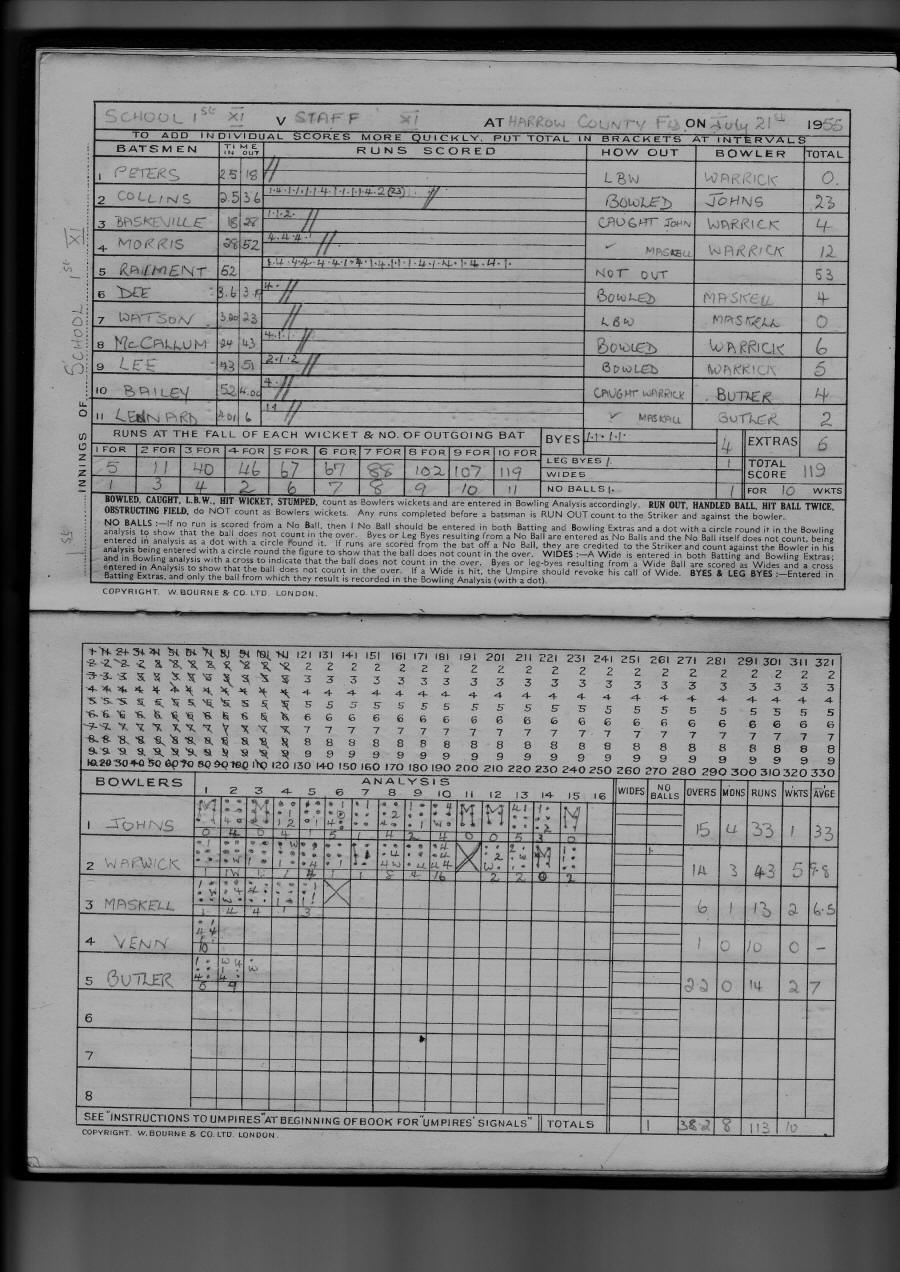 SCHOOL 1st XI V STAFF XI AT HARROW COUNTY ON July 21st 1955
TO ADD INDIVIDUAL SCORES MORE QUICKLY, PUT TOTAL IN BRACKETS AT INTERVALS
BATSMEN TIME IN OUT RUNS SCORED HOW OUT BOWLER TOTAL
1 PETERS 2.5 18 LBW WARRICK 0.
2 COLLINS 2.5 36 1.4.1.1.1.4.1.1.1.4.2(23) BOWLED JOHNS 23
3 BASKEVILLE 18 28 1.1.2. CAUGHT JOHN WARRICK 4
4 MORRIS 28 52 4.4.4. MASKELL WARRICK 12
5 RAIMENT 52 NOT OUT 53
6 DEE 4. BOWLED MASKELL 4
7 WATSON 23 LBW MASKELL 0
8 McCALLUM 24 43 4.1.1. BOWLED WARRICK 6
9 LEE 43 51 2.1.2 BOWLED WARRICK 5
10 BAILEY 52 4.00 4. CAUGHT WARRICK BUTLER 4
11 LENNARD 4.01 6 1.1 MASKALL BUTLER 2
INNINGS OF SCHOOL 1st XI
RUNS AT THE FALL OF EACH WICKET & NO. OF OUTGOING BAT BYES 1.1.1.1. 4 EXTRAS 6
1 FOR 2 FOR 3 FOR 4 FOR 5 FOR 6 FOR 7 FOR 8 FOR 9 FOR 10 FOR LEG BYES 1. 1
5 11 40 46 67 67 88 102 107 119 WIDES TOTAL SCORE 119
1 3 4 2 6 7 8 9 10 11 NO BALLS 1. 1 FOR 10 WKTS
BOWLED, CAUGHT, L.B.W., HIT WICKET, STUMPED, count as Bowlers wickets and are entered in Bowling Analysis accordingly. RUN OUT, HANDLED BALL, HIT BALL TWICE,
OBSTRUCTING FIELD, do NOT count as Bowlers wickets. Any runs completed before a batsman is RUN OUT count to the Striker and against the bowler.
NO BALLS :—If no run is scored from a No Ball, then 1 No Ball should be entered in both Batting and Bowling Extras and a dot with a circle round it in the Bowling
analysis to show that the ball does not count in the over. Byes or Leg Byes resulting from a No Ball are entered as No Balls and the No Ball itself does not count, being
entered in analysis as a dot with a circle round it. If runs are scored from the bat off a No Ball, they are credited to the Striker and count against the Bowler in his
analysis being entered with a circle round the figure to show that the ball does not count in the over. WIDES :—A Wide is entered in both Batting and Bowling Extras;
and in Bowling analysis with a cross to indicate that the ball does not count in the over. Byes or leg-byes resulting from a Wide Ball are scored as Wides and a cross
entered in Analysis to show that the ball does not count in the over. If a Wide is hit, the Umpire should revoke his call of Wide. BYES & LEG BYES :—Entered in
Batting Extras, and only the ball from which they result is recorded in the Bowling Analysis (with a dot).
COPYRIGHT. W. BOURNE & CO. LTD. LONDON.
1 11 21 31 41 51 61 71 81 91 101 111 121 131 141 151 161 171 181 191 201 211 221 231 241 251 261 271 281 291 301 311 321
2 2 2 2 2 2 2 2 2 2 2 2 2 2 2 2 2 2 2 2 2 2 2 2 2 2 2 2 2 2 2 2 2
3 3 3 3 3 3 3 3 3 3 3 3 3 3 3 3 3 3 3 3 3 3 3 3 3 3 3 3 3 3 3 3 3
4 4 4 4 4 4 4 4 4 4 4 4 4 4 4 4 4 4 4 4 4 4 4 4 4 4 4 4 4 4 4 4 4
5 5 5 5 5 5 5 5 5 5 5 5 5 5 5 5 5 5 5 5 5 5 5 5 5 5 5 5 5 5 5 5 5
6 6 6 6 6 6 6 6 6 6 6 6 6 6 6 6 6 6 6 6 6 6 6 6 6 6 6 6 6 6 6 6 6
7 7 7 7 7 7 7 7 7 7 7 7 7 7 7 7 7 7 7 7 7 7 7 7 7 7 7 7 7 7 7 7 7
8 8 8 8 8 8 8 8 8 8 8 8 8 8 8 8 8 8 8 8 8 8 8 8 8 8 8 8 8 8 8 8 8
9 9 9 9 9 9 9 9 9 9 9 9 9 9 9 9 9 9 9 9 9 9 9 9 9 9 9 9 9 9 9 9 9
10 20 30 40 50 60 70 80 90 100 110 120 130 140 150 160 170 180 190 200 210 220 230 240 250 260 270 280 290 300 310 320 330
BOWLERS ANALYSIS WIDES NO BALLS OVERS MDNS RUNS WKTS AVGE
1 2 3 4 5 6 7 8 9 10 11 12 13 14 15 16
1 JOHNS 0 4 0 4 1 5 1 4 2 4 0 0 5 3 0 15 4 33 1 33
2 WARWICK 14 3 43 5 9.8
3 MASKELL 1 4 4 1 3 6 1 13 2 6.5
4 VENN 10 1 0 10 0 –
5 BUTLER 5 9 2.2 0 14 2 7
6
7
8
SEE "INSTRUCTIONS TO UMPIRES" AT BEGINNING OF BOOK FOR "UMPIRES' SIGNALS" TOTALS 1 38.2 8 113 10
COPYRIGHT. W. BOURNE & CO. LTD. LONDON.